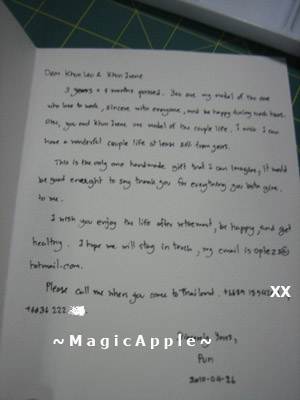 Dear Khun Leo & Khun Irene
3 years + 8 months passed. You are my model of the one
who love to work, sincere with everyone, and be happy during work hours.
Also, you and Khun Irene are model of the couple life. I wish I can
have a wonderful couple life at lease 50% from yours.
This is the only one handmade gift that I can imagine, it would
be good enought to say thank you for everything you both give
to me.
I wish you enjoy the life after retirement, be happy, and get
healthy. I hope we will stay in touch, my email is
hotmail.com.
Please call me when you come to Thailand. XX
222
~MagicApple~
Sincerely Yours,
Puri
2010-04-26